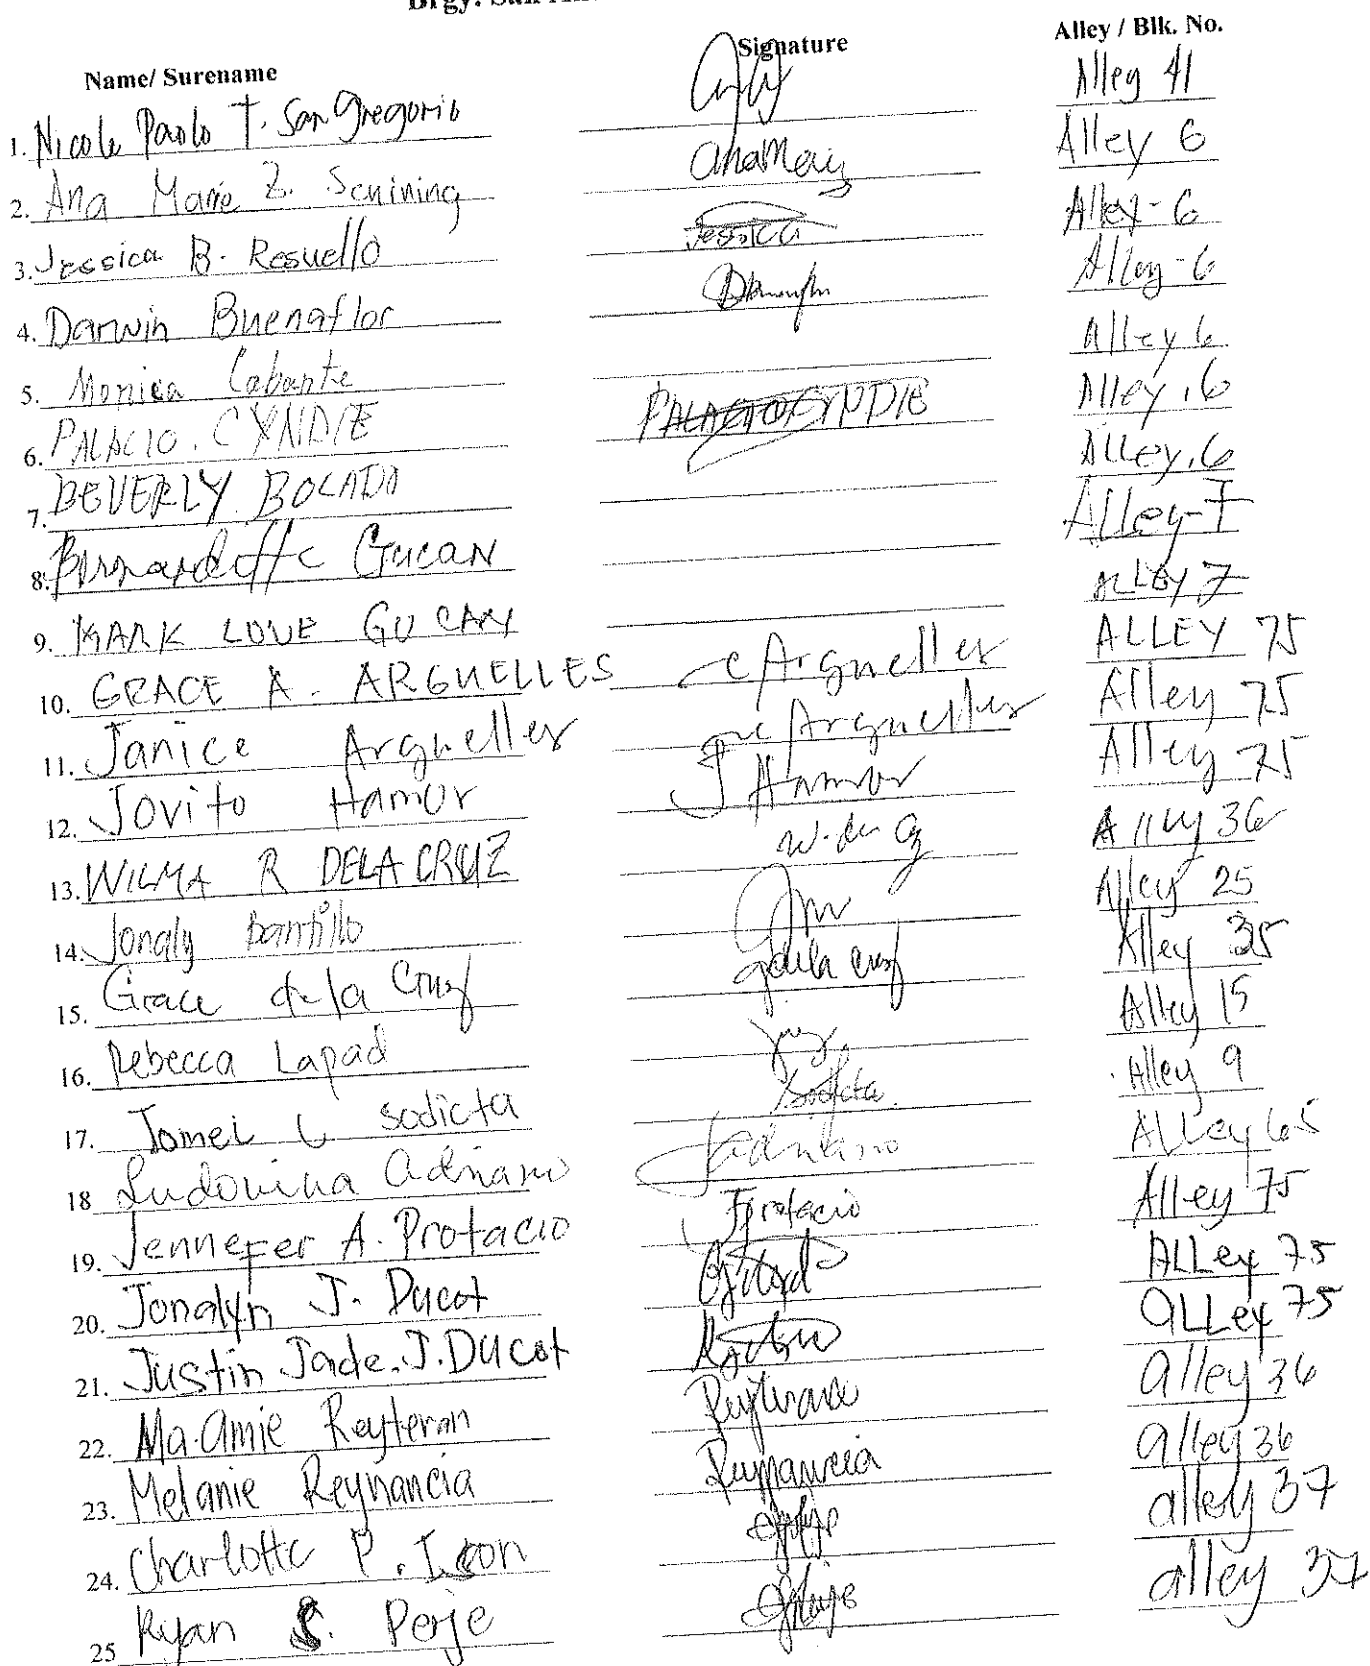 Brgy. San
Name/ Surename Signature Alley / Blk. No.
1. Nicole Paolo T. San Gregorio Alley 41
2. Ana Marie Z. AnaMary Alley 6
3. Jessica B. Resuello Jessica Alley-6
4. Darwin Buenaflor Alley-6
5. Monica Cabante Alley 6
6. PALACIO. CYNDIE PALACIO CYNDIE Alley.6
7. BEVERLY BOCADO Alley.6
8. Bernardette Gucan Alley-7
9. MARK LOVE GUCAN ALLEY 7
10. GRACE A. ARGUELLES Arguelles ALLEY 75
11. Janice Arguelles Arguelles Alley 75
12. Jovito Hamor J Hamor Alley 75
13. WILMA R DELA CRUZ Alley 36
14. Jonaly Alley 25
15. Grace dela Cruz gdela cruz Alley 35
16. Rebecca Lapad Alley 15
17. Jomel L sodicta Sodicta Alley 9
18 Ludovina Adriano Adriano ALLey 65
19. Jennefer A. Protacio JProtacio Alley 75
20. Jonalyn J. Ducot ALLey 75
21. Justin Jade. J. Ducot aLLey 75
22. Ma. Amie Reyteran alley 36
23. Melanie Reynancia Reynancia alley 36
24. Charlotte P. Alley 37
25 Ryan S. Perje alley 37